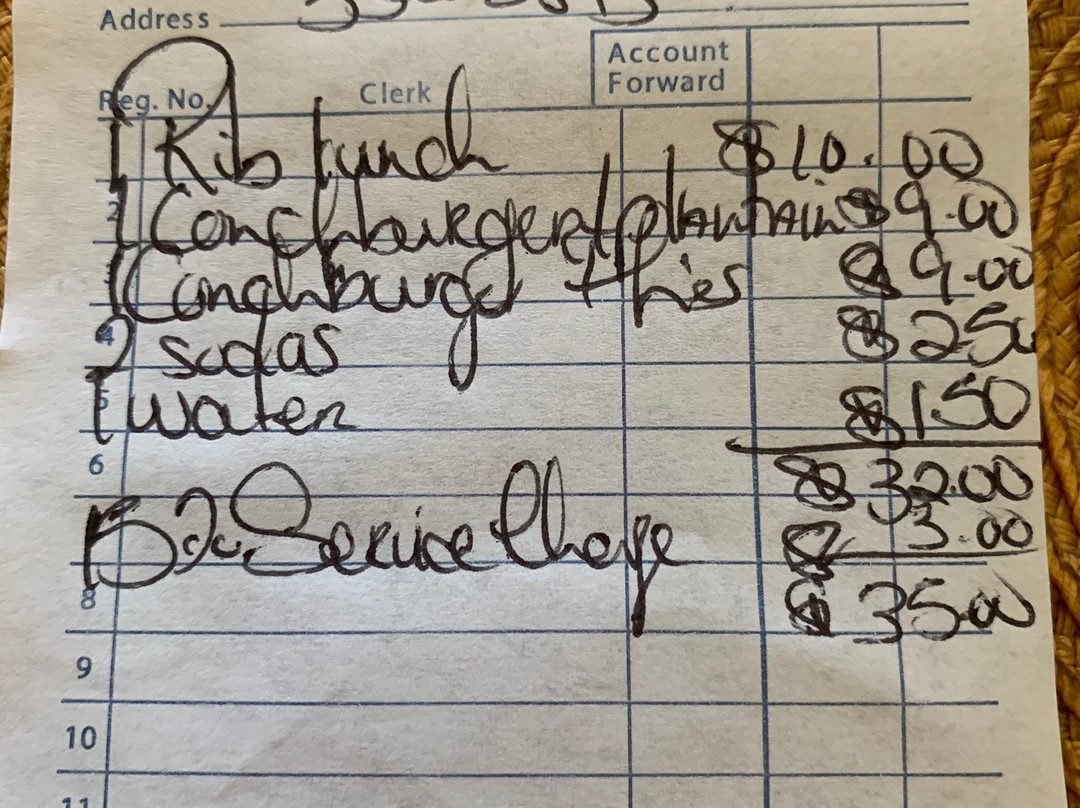 Address
Account
Forward
Reg. No. Clerk
1 Rib lunch $10.00
2 1 Conchburger + plantain $9.00
1 Conchburger + fries $9.00
4 2 sodas $2.50
5 1 water $1.50
6 $32.00
Service Charge $3.00
8 $35.00
9
10
11